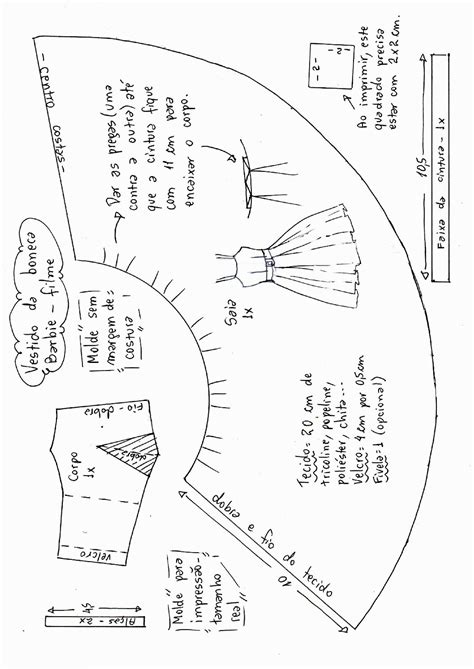 Vestido da boneca
Barbie - filme
Molde sem
margem de
costura
Centro - costas
Dar as pregas (uma
contra a outra) até
que a cintura fique
com 11 cm para
encaixar o corpo.
-2-
-2-
Ao imprimir, este
quadrado precisa
estar com 2x2cm.
Fio - dobra
Corpo
1x
dobra
Velcro
Saia
1x
10,5
Faixa da cintura - 1x
4,5
Alças - 2x
Molde para
impressão -
tamanho
real
dobra e fio do tecido
10
Tecido = 20 cm de
tricoline, popeline,
poliéster, chita...
Velcro = 4 cm por 0,5cm
Fivela = 1 (opcional)